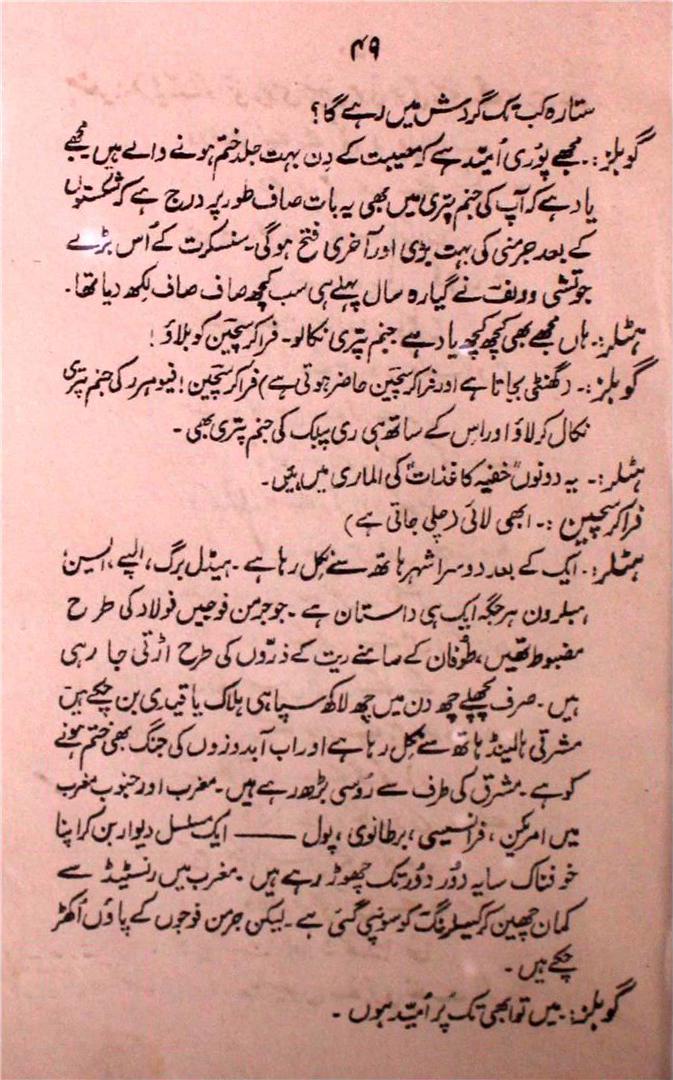 ۴۹
ستارہ کب تک گردش میں رہے گا؟
گوبلز:۔ مجھے پوری اُمید ہے کہ مصیبت کے دِن بہت جلد ختم ہونے والے ہیں مجھے
یاد ہے کہ آپ کی جنم پتری میں بھی یہ بات صاف طور پر درج ہے کہ شکستوں
کے بعد جرمنی کی بہت بڑی اور آخری فتح ہوگی۔ سنسکرت کے اُس بڑے
جوتشی وولف نے گیارہ سال پہلے ہی سب کچھ صاف صاف لکھ دیا تھا۔
ہٹلر:۔ ہاں مجھے بھی کچھ کچھ یاد ہے جنم پتری نکالو۔ فراکرسچین کو بلاؤ!
گوبلز:۔ (گھنٹی بجاتا ہے اور فراکرسچین حاضر ہوتی ہے) فراکرسچین! فیوہرر کی جنم پتری
نکال کر لاؤ اور اس کے ساتھ ہی ری پبلک کی جنم پتری بھی۔
ہٹلر:۔ یہ دونوں "خفیہ کاغذات" کی الماری میں ہیں۔
فراکرسچین:۔ ابھی لائی (چلی جاتی ہے)
ہٹلر:۔ ایک کے بعد دوسرا شہر ہاتھ سے نکل رہا ہے۔ ہیڈل برگ، ایسین،
ہیلرون ہر جگہ ایک ہی داستان ہے۔ جو جرمن فوجیں فولاد کی طرح
مضبوط تھیں، طوفان کے سامنے ریت کے ذرّوں کی طرح اڑتی جا رہی
ہیں۔ صرف پچھلے چھ دن میں چھ لاکھ سپاہی ہلاک یا قیدی بن چکے ہیں
مشرقی ہالینڈ ہاتھ سے نکل رہا ہے اور اب آبدوزوں کی جنگ بھی ختم ہونے
کو ہے۔ مشرق کی طرف سے رُوسی بڑھ رہے ہیں۔ مغرب اور جنوب مغرب
میں امریکن، فرانسیسی، برطانوی، پول —— ایک مسلسل دیوار بن کر اپنا
خوفناک سایہ دُور دُور تک چھوڑ رہے ہیں۔ مغرب میں رنسٹیڈ سے
کمان چھین کر کیسلرنگ کو سونپی گئی ہے۔ لیکن جرمن فوجوں کے پاؤں اُکھڑ
چکے ہیں۔
گوبلز:۔ میں تو ابھی تک پُر اُمید ہوں۔